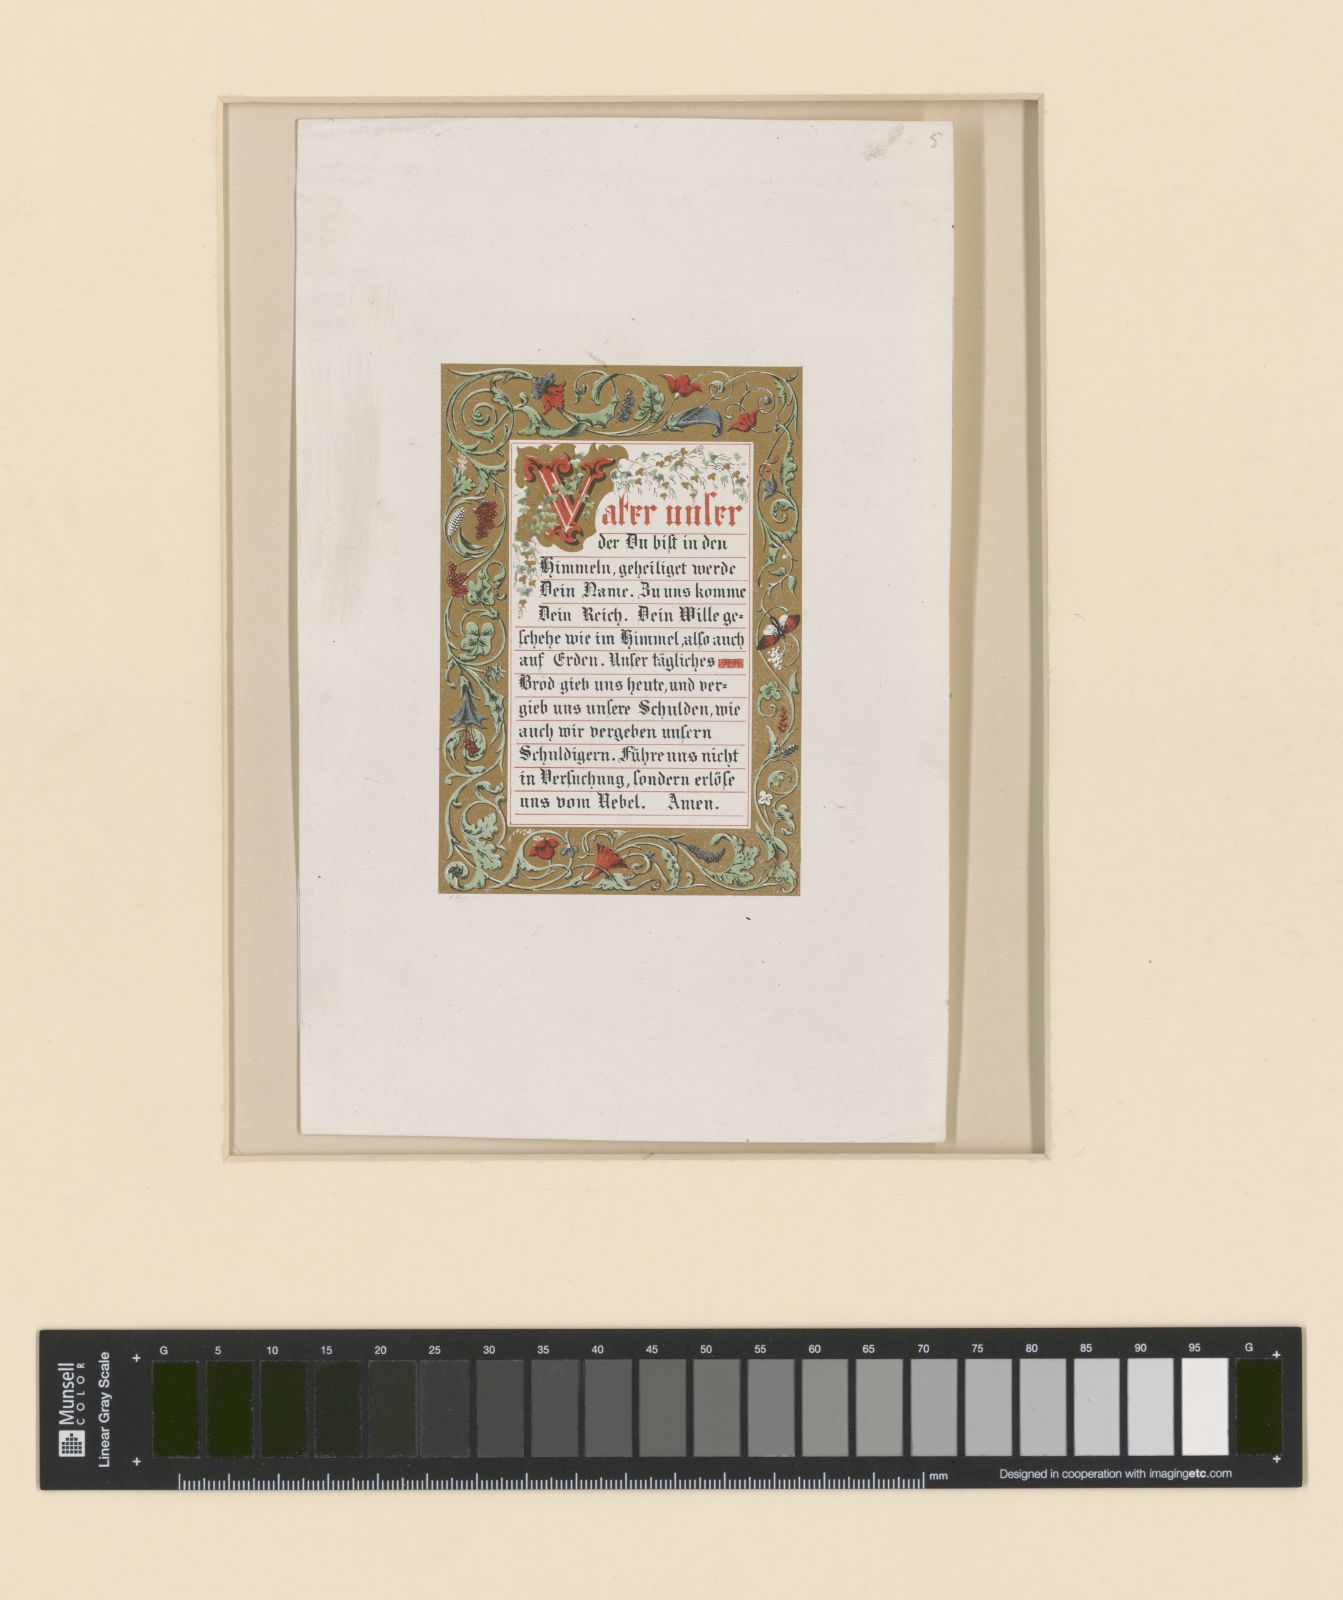 5
Vater unser
der Du bist in den
Himmeln, geheiliget werde
Dein Name. Zu uns komme
Dein Reich. Dein Wille ge=
schehe wie im Himmel, also auch
auf Erden. Unser tägliches
Brod gieb uns heute, und ver=
gieb uns unsere Schulden, wie
auch wir vergeben unsern
Schuldigern. Führe uns nicht
in Versuchung, sondern erlöse
uns vom Uebel. Amen.
Munsell
COLOR
Linear Gray Scale
G 5 10 15 20 25 30 35 40 45 50 55 60 65 70 75 80 85 90 95 G
mm
Designed in cooperation with imagingetc.com